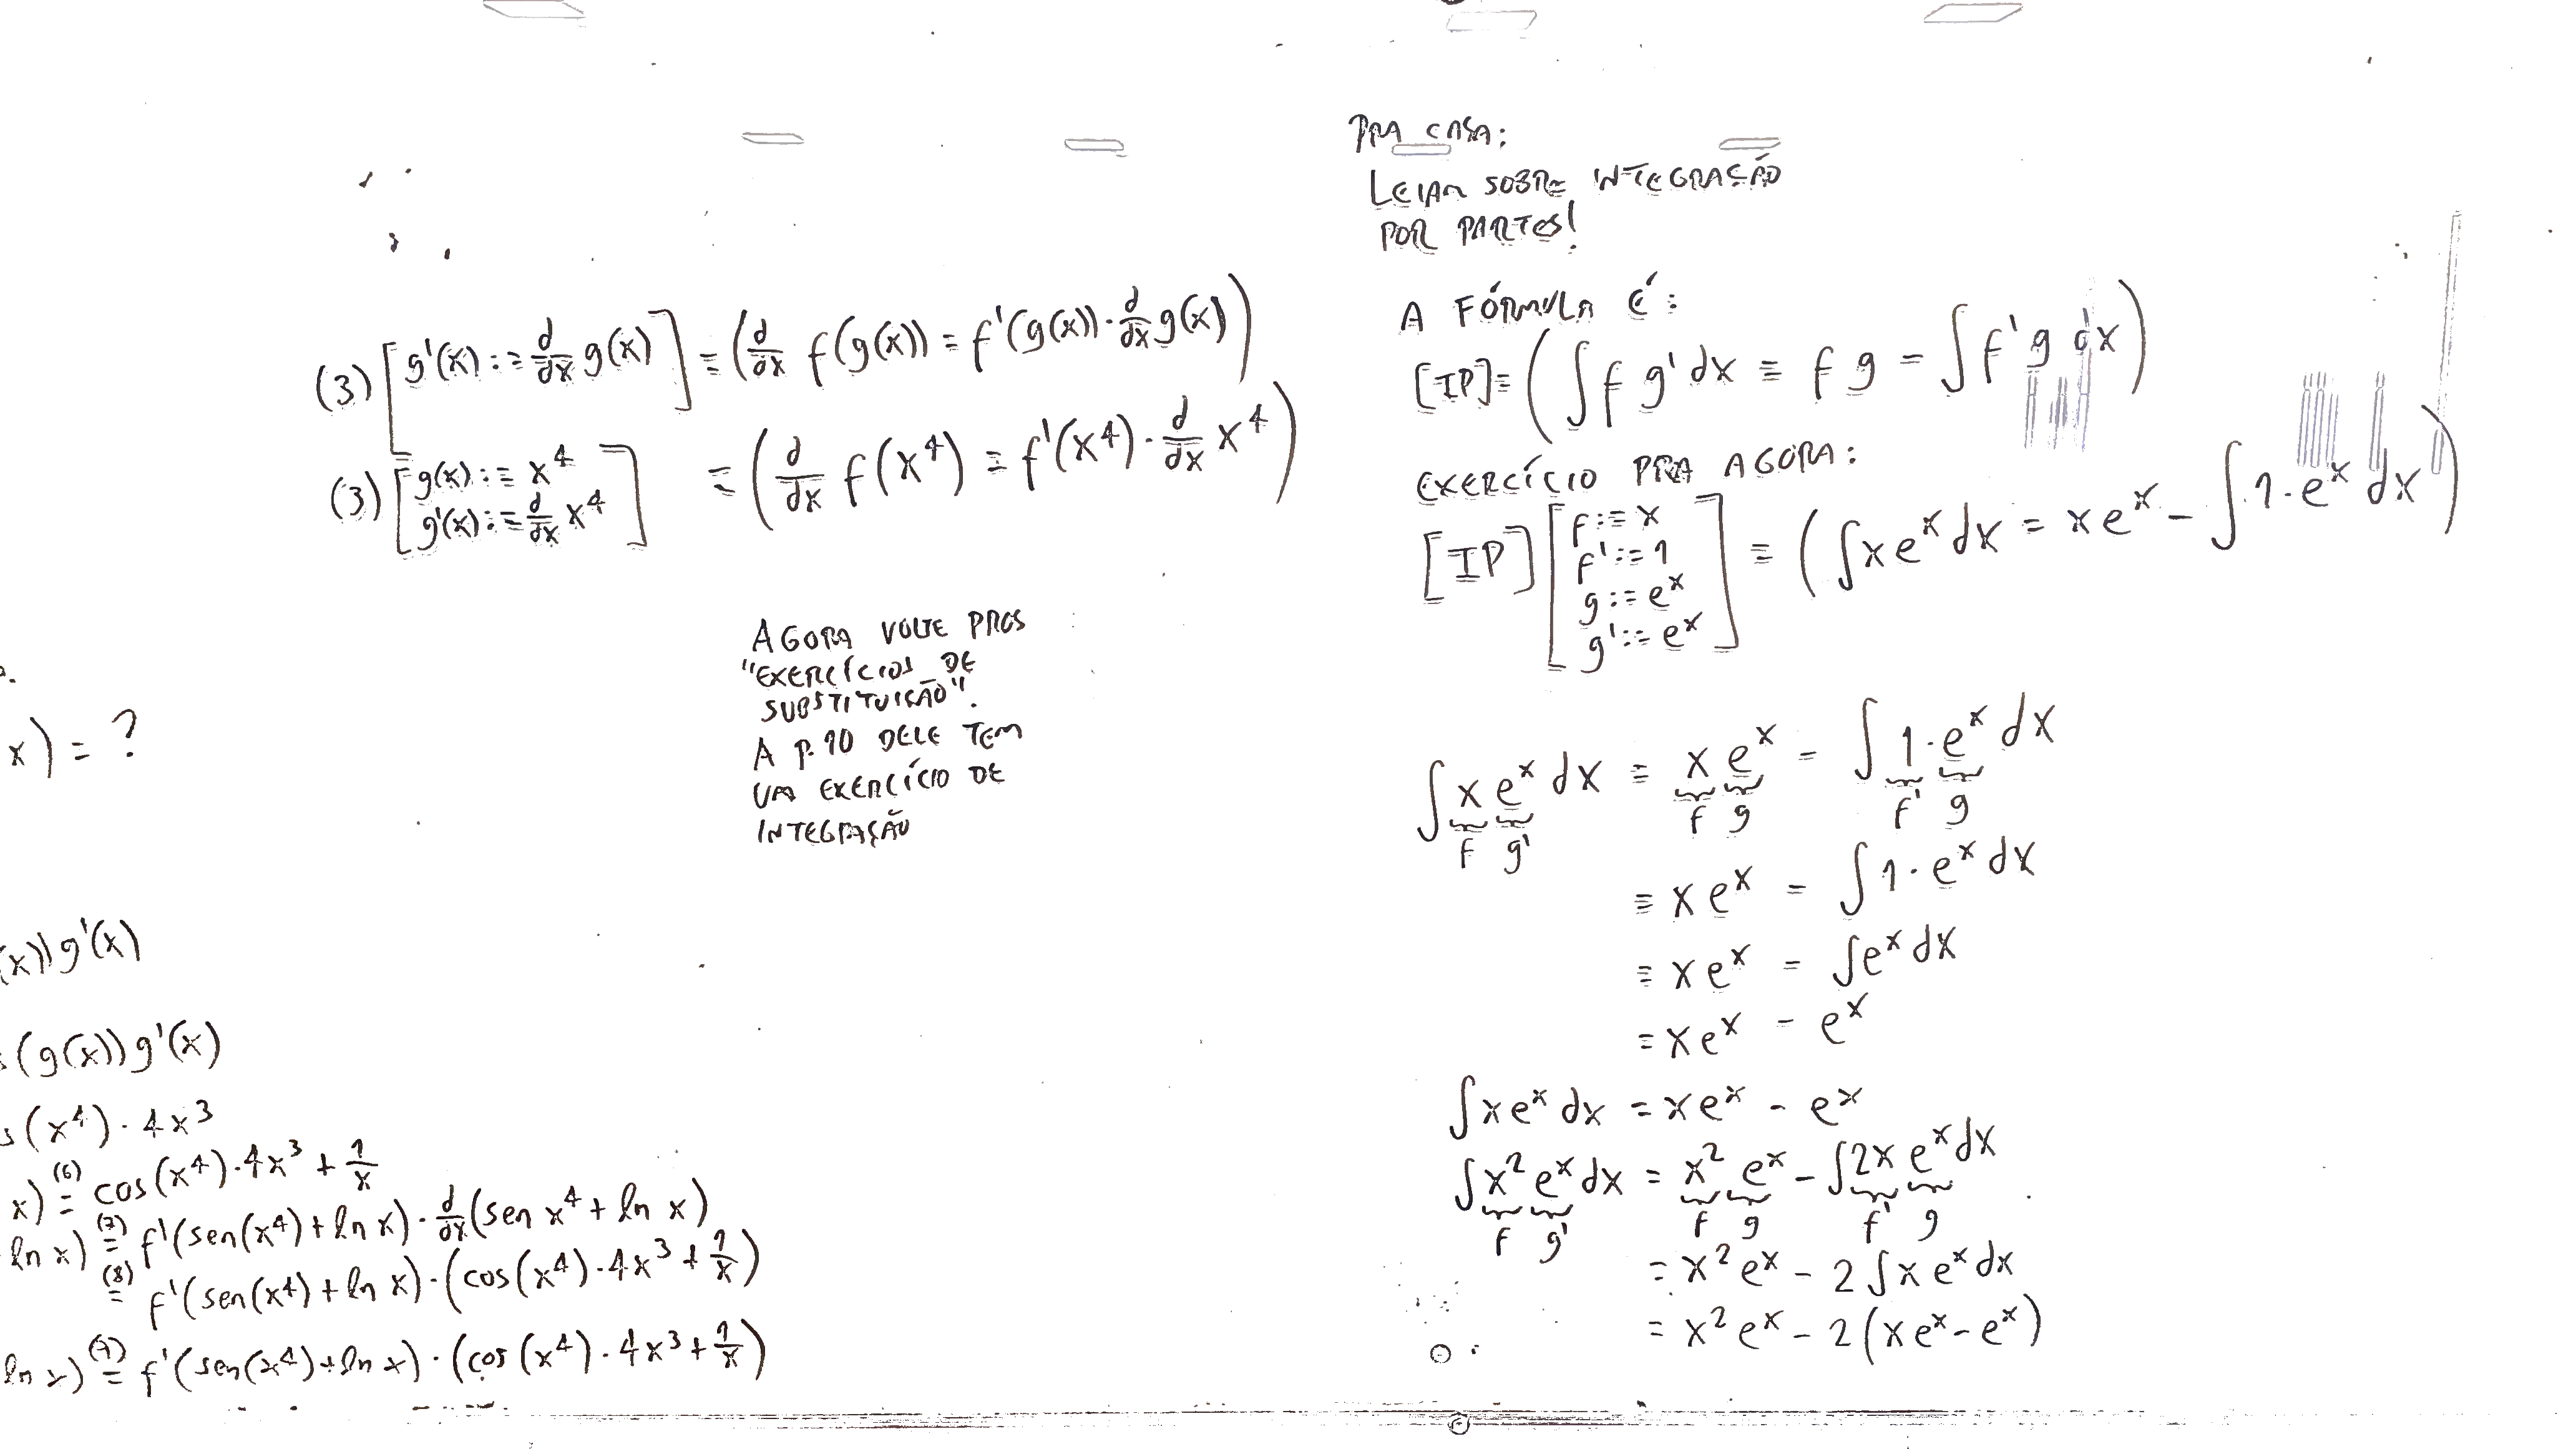 (3) [g'(x) := d/dx g(x)] = (d/dx f(g(x)) = f'(g(x)) · d/dx g(x))
(3) [g(x) := x⁴
g'(x) := d/dx x⁴] = (d/dx f(x⁴) = f'(x⁴) · d/dx x⁴)
AGORA VOLTE PROS
"EXERCÍCIOS DE
SUBSTITUIÇÃO".
A P. 10 DELE TEM
UM EXERCÍCIO DE
INTEGRAÇÃO
x) = ?
(x)) g'(x)
(g(x)) g'(x)
s(x⁴) · 4x³
x) (6)= cos(x⁴) · 4x³ + 1/x
ln x) (7)= f'(sen(x⁴) + ln x) · d/dx (sen x⁴ + ln x)
(8)= f'(sen(x⁴) + ln x) · (cos(x⁴) · 4x³ + 1/x)
ln x) (9)= f'(sen(x⁴) + ln x) · (cos(x⁴) · 4x³ + 1/x)
PRA CASA:
LEIAM SOBRE INTEGRAÇÃO
POR PARTES!
A FÓRMULA É:
[IP] = (∫ f g' dx = f g - ∫ f' g dx)
EXERCÍCIO PRA AGORA:
[IP] [f := x
f' := 1
g := eˣ
g' := eˣ] = (∫ x eˣ dx = x eˣ - ∫ 1 · eˣ dx)
∫ x eˣ dx = x eˣ - ∫ 1 · eˣ dx
f g' f g f' g
= x eˣ - ∫ 1 · eˣ dx
= x eˣ - ∫ eˣ dx
= x eˣ - eˣ
∫ x eˣ dx = x eˣ - eˣ
∫ x² eˣ dx = x² eˣ - ∫ 2x eˣ dx
f g' f g f' g
= x² eˣ - 2 ∫ x eˣ dx
= x² eˣ - 2 (x eˣ - eˣ)